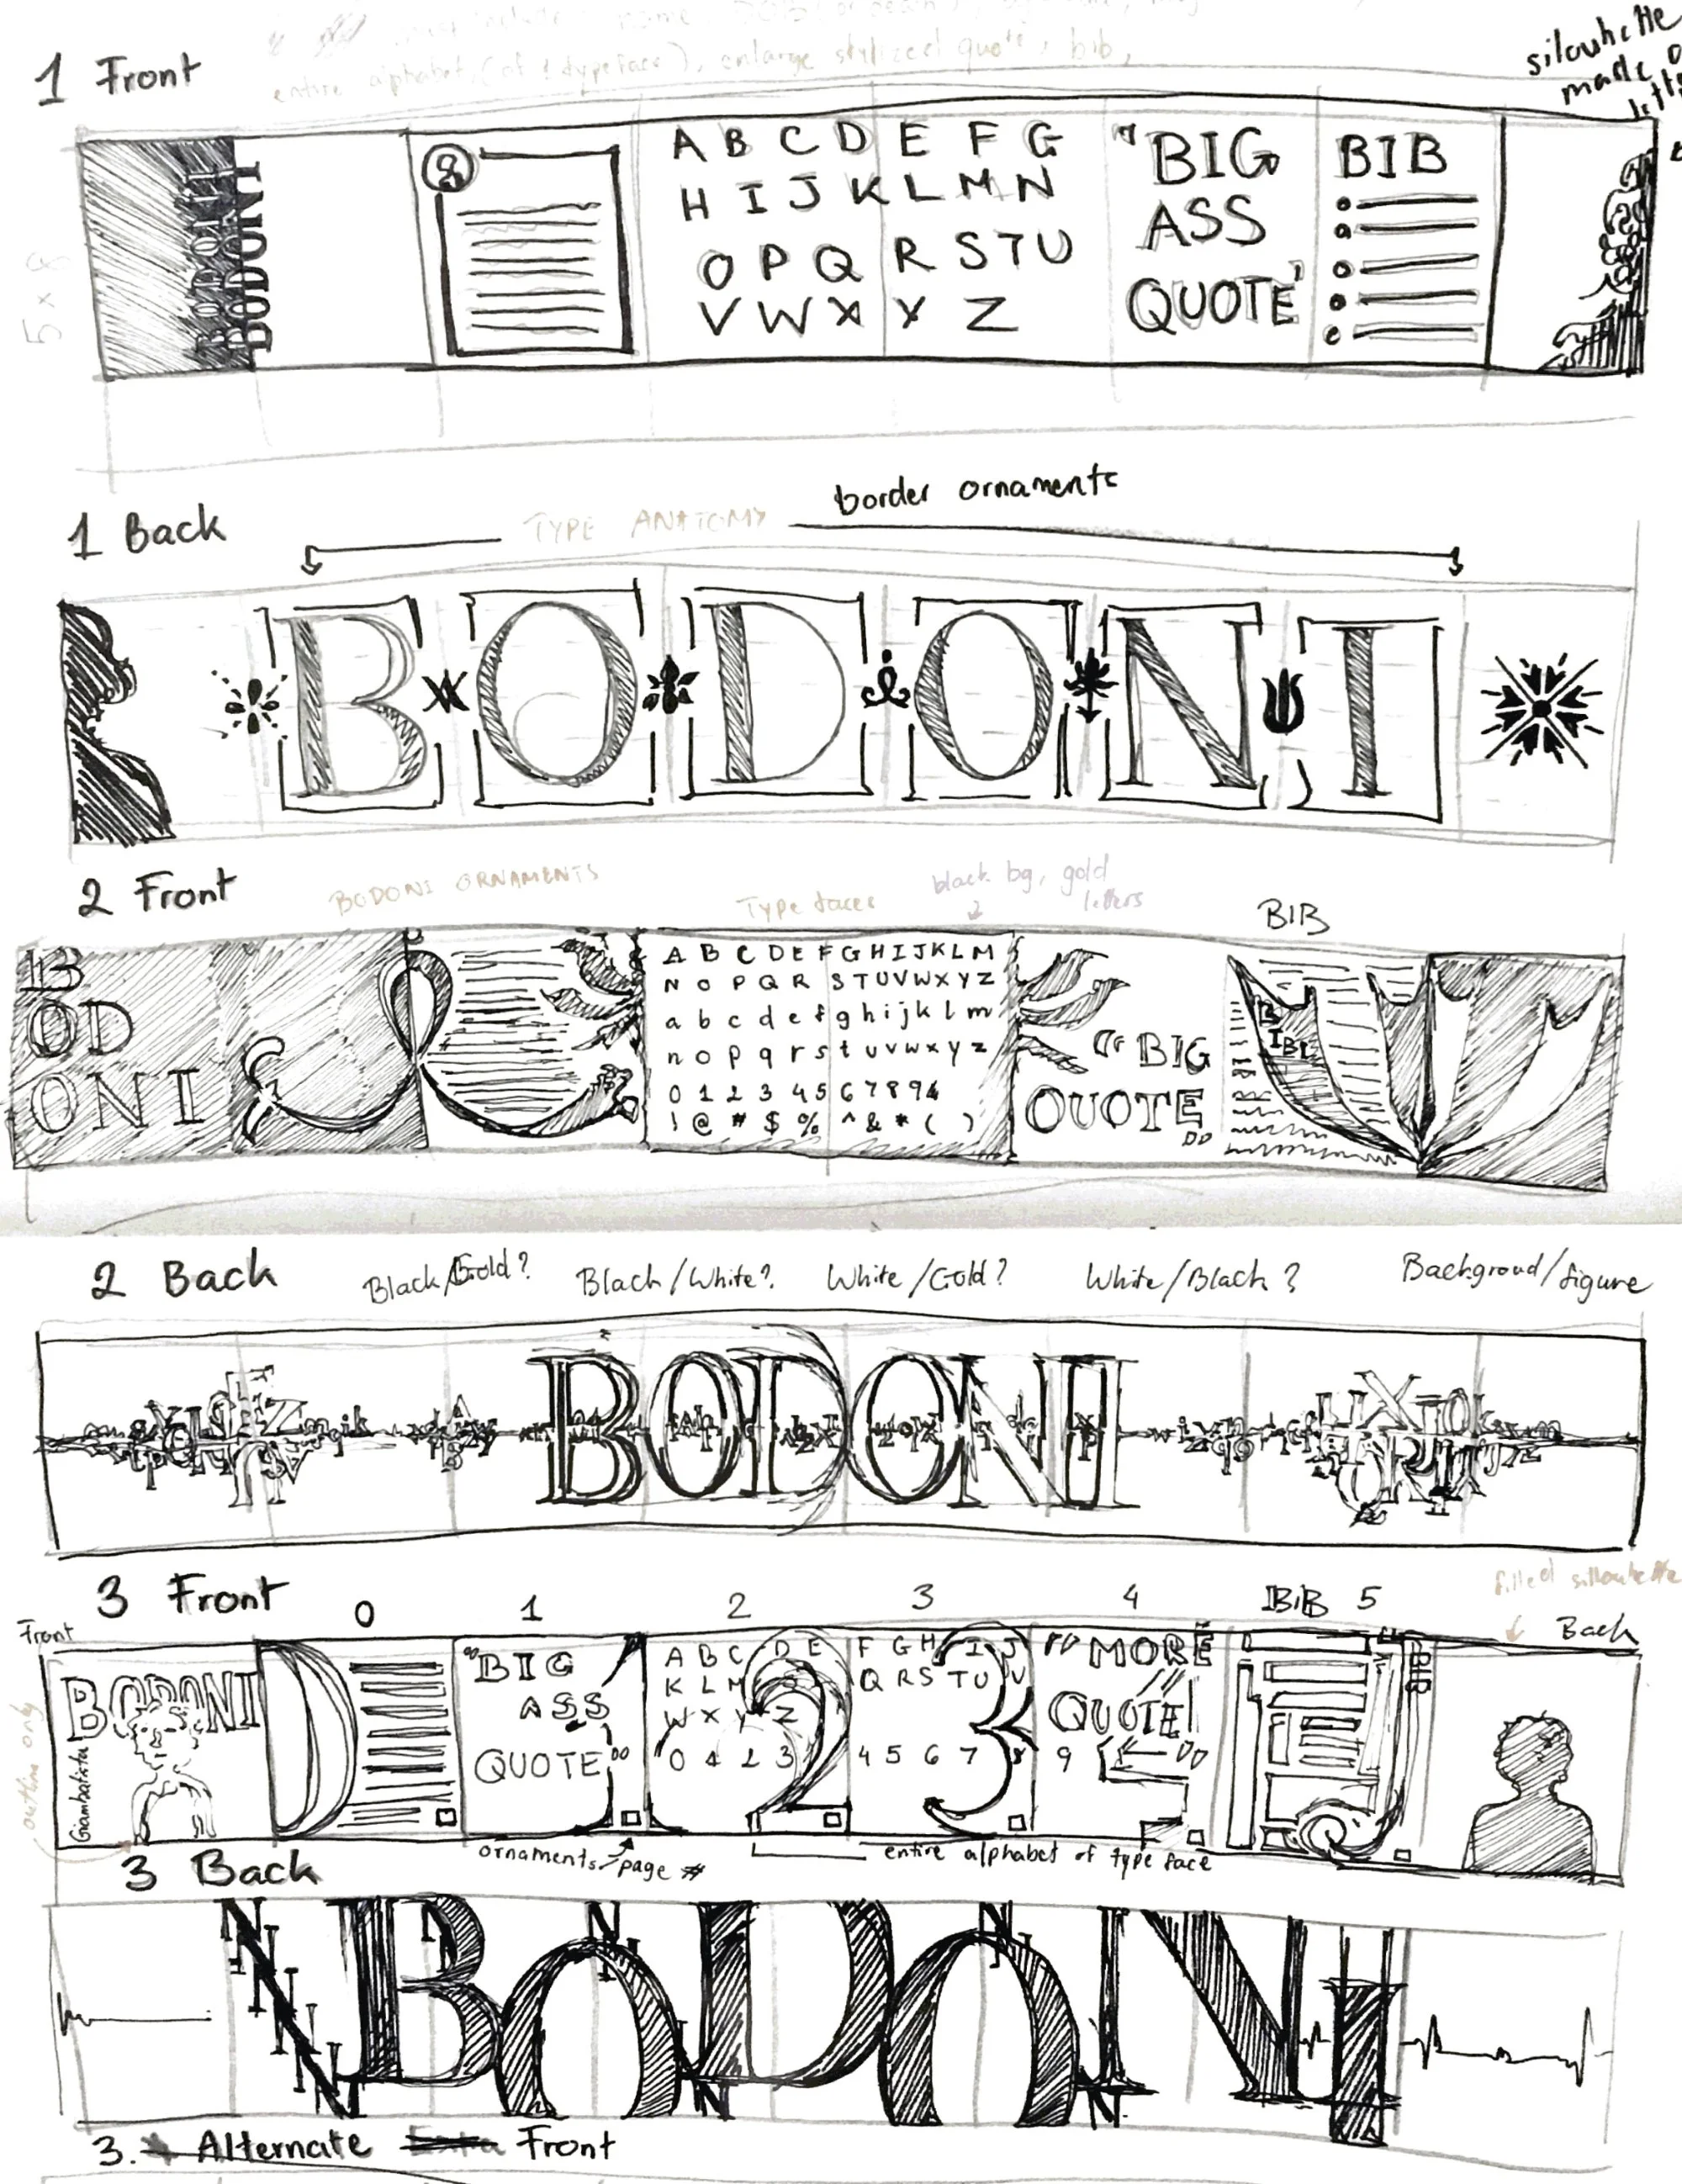 must include: name,
entire alphabet (of 1 typeface), enlarge stylized quote, bib,
silouhette
made
1 Front
5 x 8
BODONI
BODONI
BODONI
A B C D E F G
H I J K L M N
O P Q R S T U
V W X Y Z
"BIG
ASS
QUOTE"
BIB
border ornaments
TYPE ANATOMY
1 Back
B O D O N I
2 Front
BODONI ORNAMENTS
Type faces
black bg, gold
letters
BIB
B
OD
ONI
A B C D E F G H I J K L M
N O P Q R S T U V W X Y Z
a b c d e f g h i j k l m
n o p q r s t u v w x y z
0 1 2 3 4 5 6 7 8 9
! @ # $ % ^ & * ( )
"BIG
QUOTE"
2 Back
Black/Gold?
Black/White?
White/Gold?
White/Black?
Backgroud/figure
BODONI
3 Front
0 1 2 3 4 BIB 5
filled sillouhette
Front
Back
BODONI
Giambatista
outline only
"BIG
ASS
QUOTE"
1
A B C D E
K L M
W X Y Z
0 1 2 3
2
F G H I J
Q R S T U V
4 5 6 7 8
3
"MORE
QUOTE!
9
BIB
ornaments
page #
entire alphabet of type face
3 Back
N N N N N
BODONI
3. Alternate Front